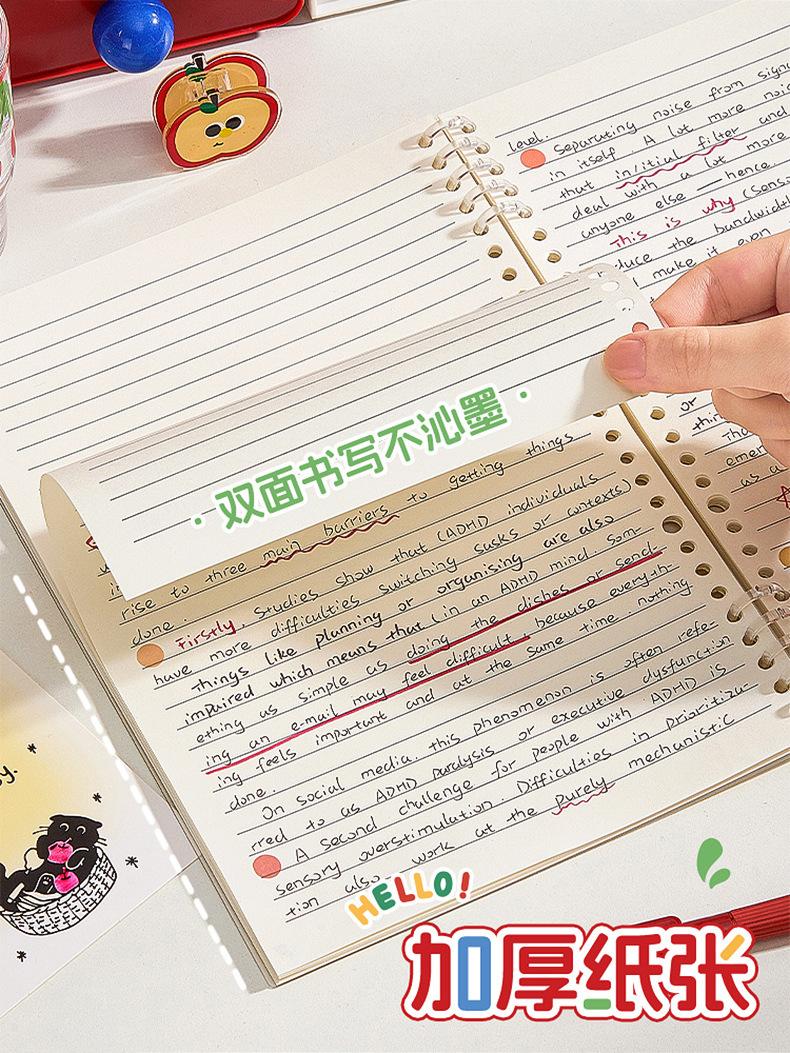 level.
Separating noise from signa
in itself. A lot more noi
that in/itial filter and
deal with a lot more
anyone else — hence.
This is why (sens
duce the bandwidth
make it even
or
thin
Tha
emer
as a
·双面书写不沁墨·
rise to three main barriers to getting things
done.
Firstly, studies show that (ADHD individuals
have more difficulties switching tasks or contexts)
things like planning or organising are also
impaired which means that (in an ADHD mind. Som-
ething as simple as doing the dishes or send-
ing an e-mail may feel difficult because everyth-
ing feels important and at the same time nothing
done.
On social media, this phenomenon is often refe-
rred to as ADHD paralysis or executive dysfunction
A second challenge for people with ADHD is
sensory overstimulation. Difficulties in prioritiza-
tion also work at the purely mechanistic
HELLO!
加厚纸张